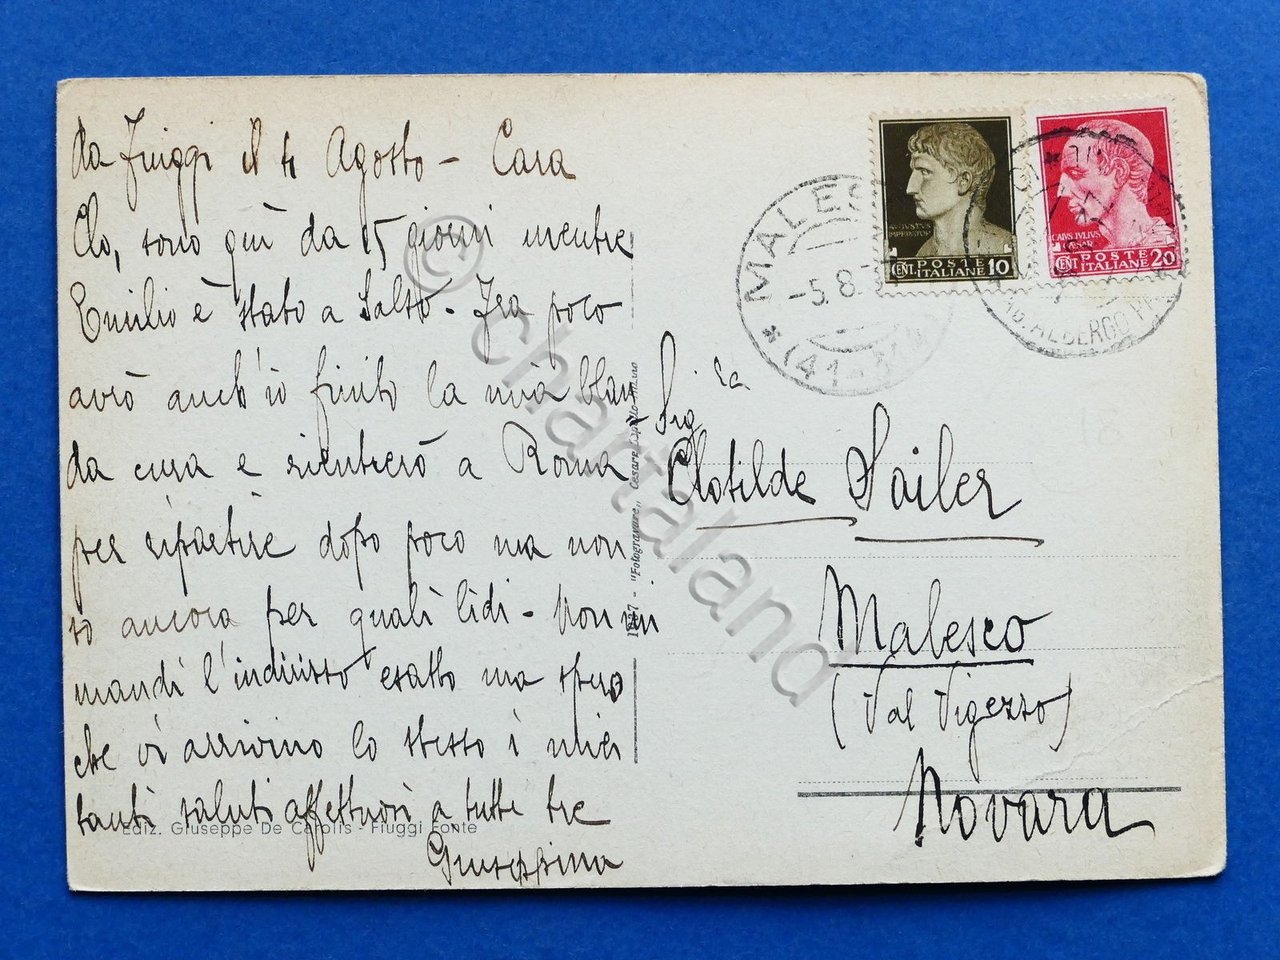 da Fiuggi il 4 Agosto - Cara
Clo, sono quì da 15 giorni mentre
Emilio è stato a Salso. Fra poco
avrò anch'io finito la mia blan
da cura e rientrerò a Roma
per ripartire dopo poco ma non
so ancora per quali lidi - Non mi
mandi l'indirizzo esatto ma spero
che vi arrivino lo stesso i miei
tanti saluti affettuosi a tutte tre
Giuseppina
Ediz. Giuseppe De Carolis - Fiuggi Fonte
"Fotogravure" Cesare
Sig.ra
Clotilde Sailer
Malesco
(Val Vigezzo)
Novara
MALES
-5.8.3
(41-
ALBERGO
AVGVSTVS
IMPERATOR
POSTE
CENT. ITALIANE 10
CAIVS IVLIVS
CAESAR
POSTE
CENT. ITALIANE 20
© chartaland